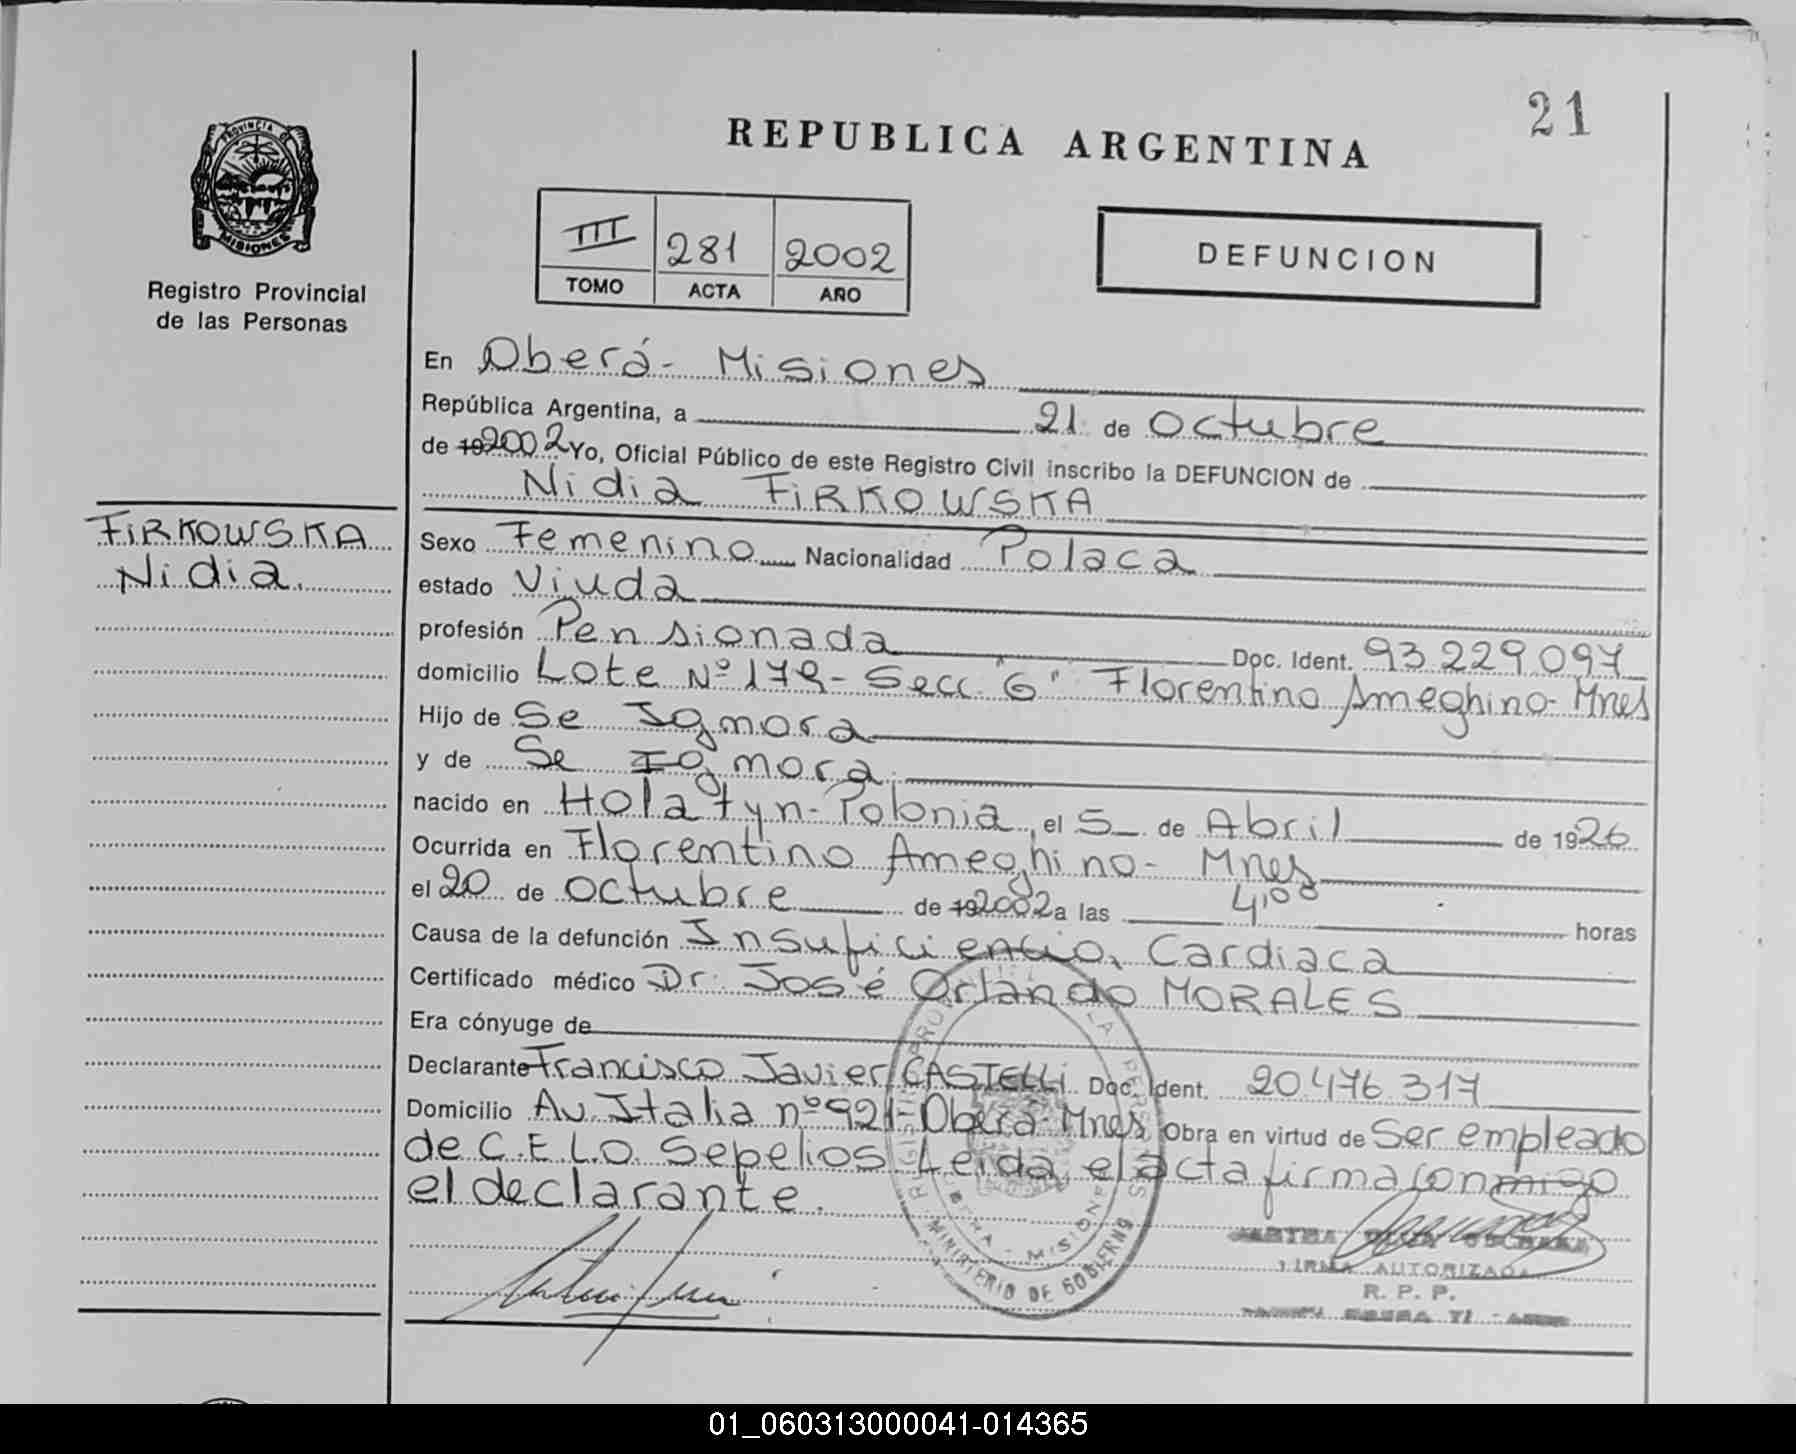 21
REPUBLICA ARGENTINA
PROVINCIA DE
MISIONES
Registro Provincial
de las Personas
III 281 2002
TOMO ACTA AÑO
DEFUNCION
En Oberá - Misiones
República Argentina, a 21 de Octubre
de 19 2002 Yo, Oficial Público de este Registro Civil inscribo la DEFUNCION de
Nidia FIRKOWSKA
FIRKOWSKA
Nidia.
Sexo Femenino Nacionalidad Polaca
estado Viuda
profesión Pensionada Doc. Ident. 93.229.097
domicilio Lote Nº 179 - Secc. "6" Florentino Ameghino - Mnes
Hijo de Se Ignora
y de Se Ignora
nacido en Holatyn - Polonia, el 5 de Abril de 1926
Ocurrida en Florentino Ameghino - Mnes
el 20 de octubre de 19 2002 a las 4,00 horas
Causa de la defunción Insuficiencia Cardiaca
Certificado médico Dr. José Orlando MORALES
Era cónyuge de
Declarante Francisco Javier CASTELLI Doc. Ident. 20.476.317
Domicilio Av. Italia nº 921 - Oberá - Mnes Obra en virtud de Ser empleado
de C.E.L.O. Sepelios. Leida el acta firma conmigo
el declarante.
MINISTERIO DE GOBIERNO
FIRMA AUTORIZADA
R. P. P.
01_060313000041-014365